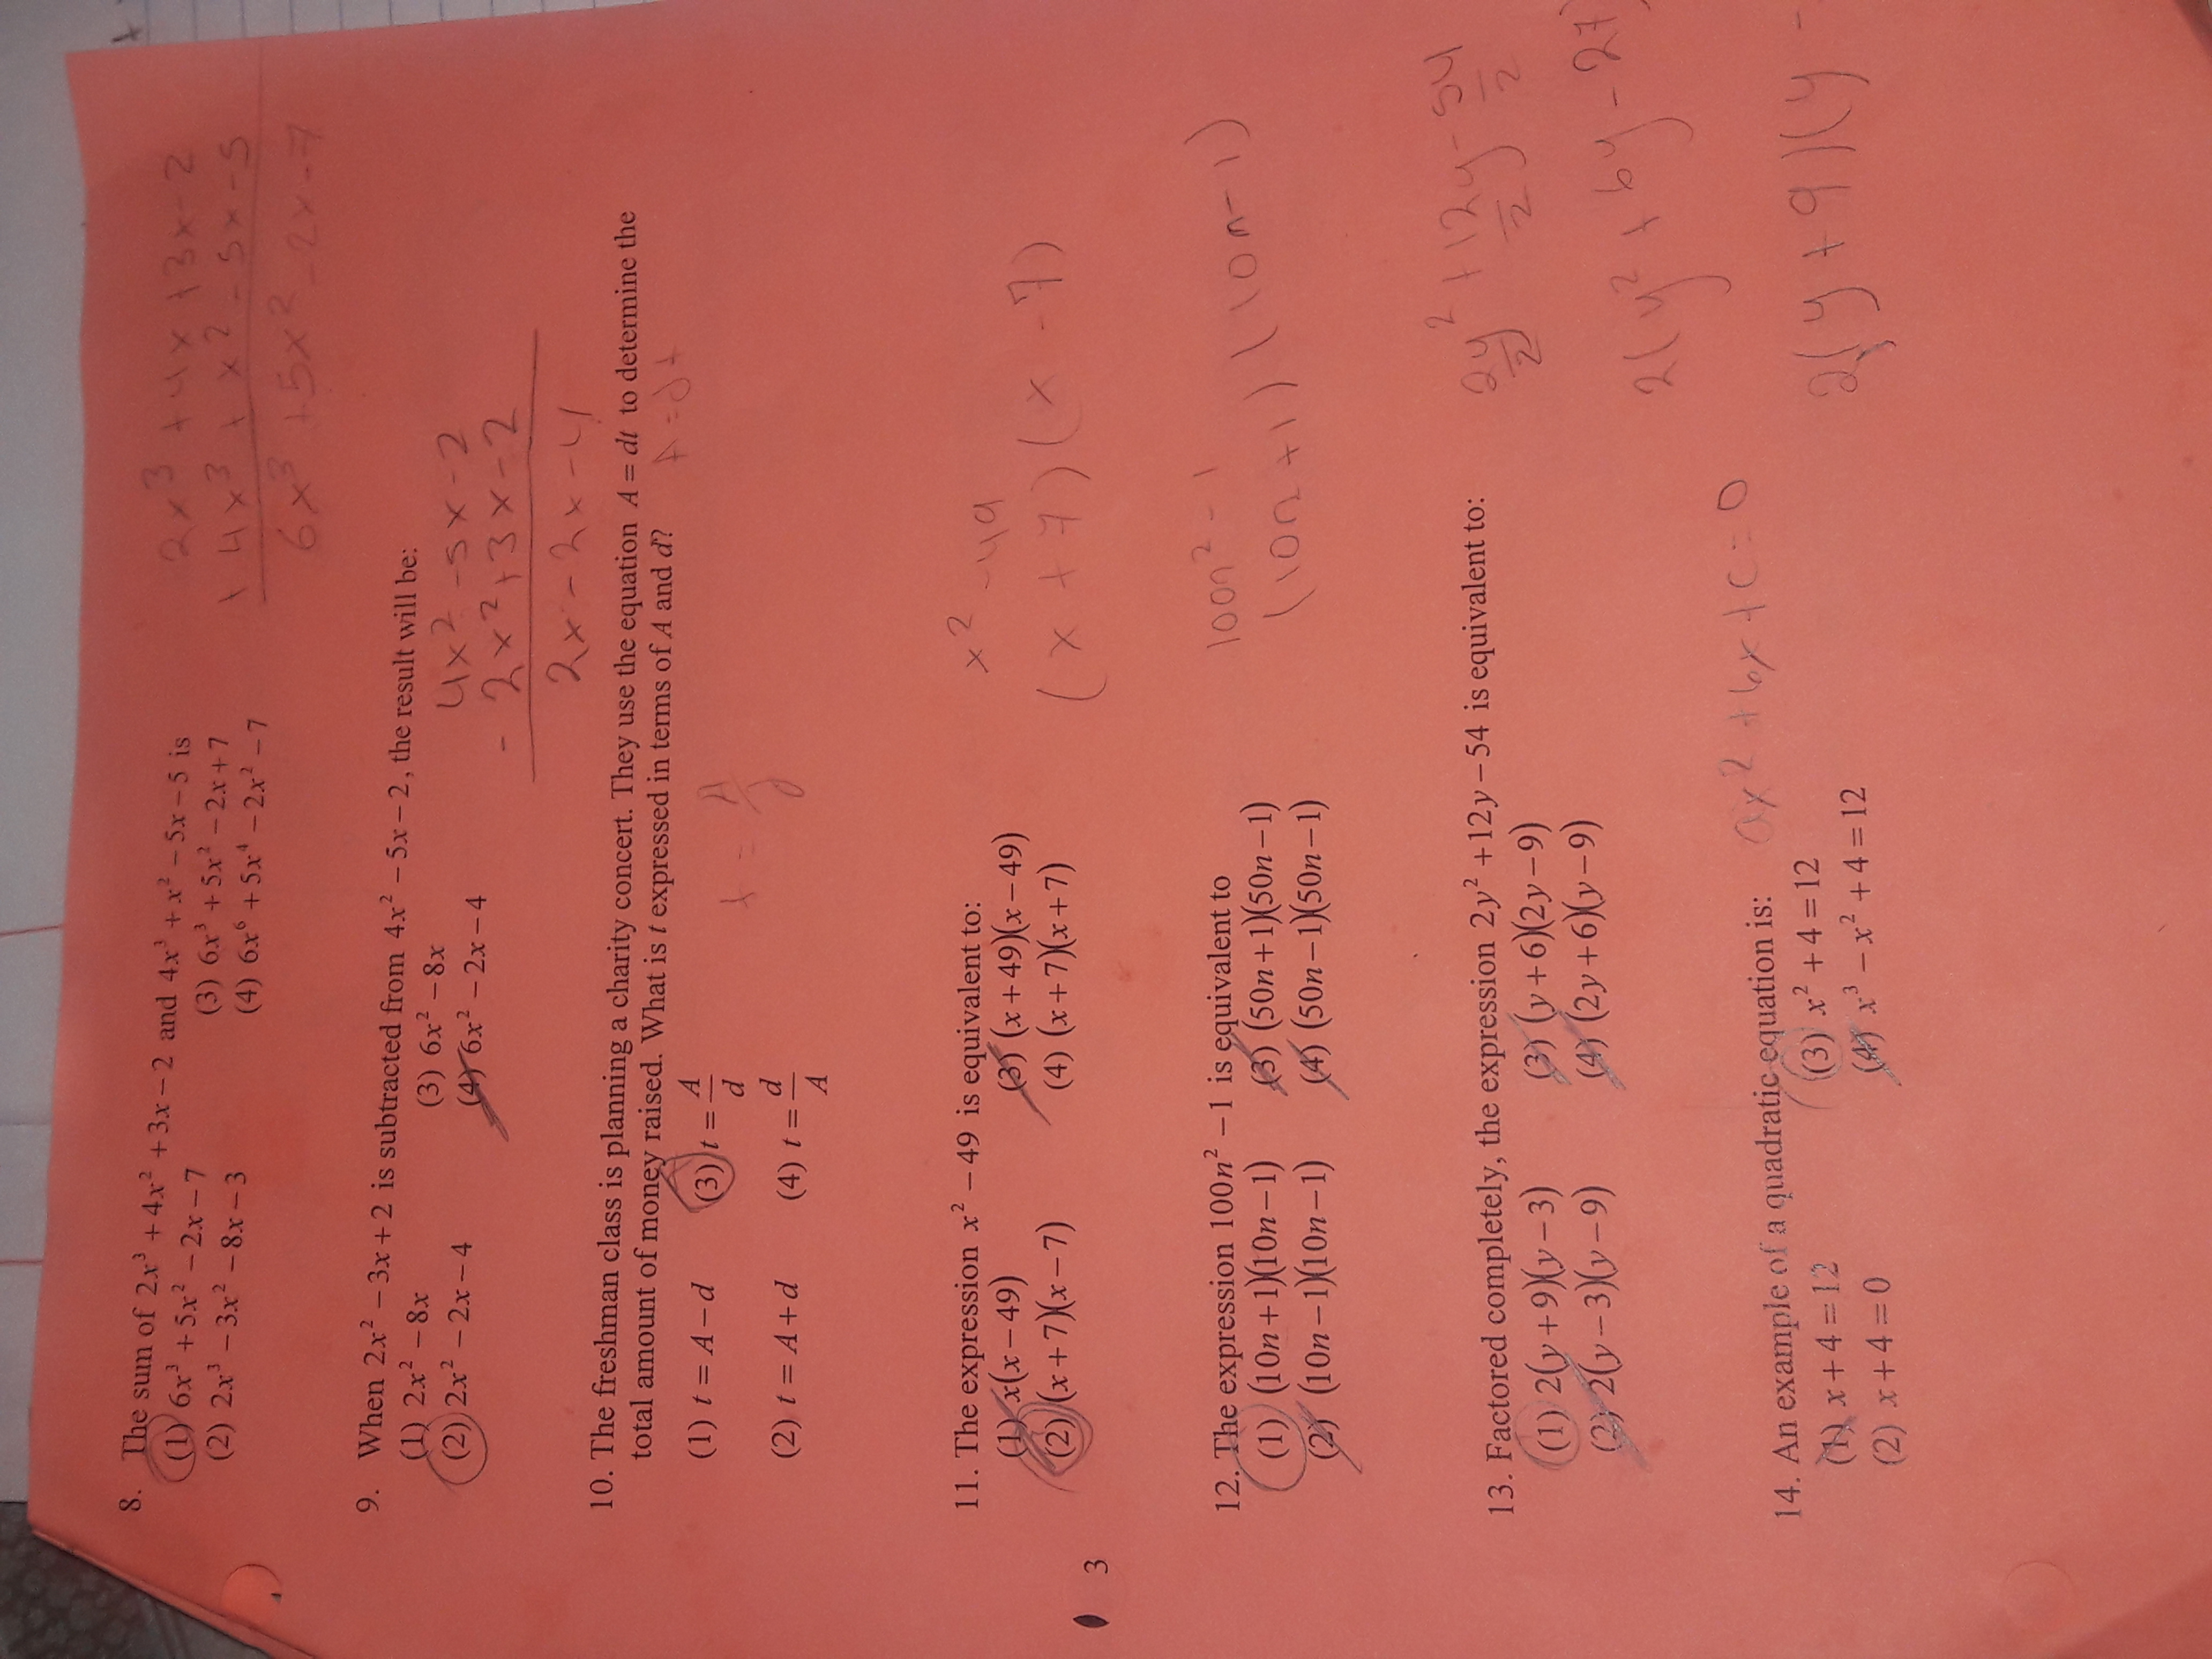 8. The sum of 2x³ + 4x² + 3x − 2 and 4x³ + x² − 5x − 5 is
(1) 6x³ + 5x² − 2x − 7 (3) 6x³ + 5x² − 2x + 7
(2) 2x³ − 3x² − 8x − 3 (4) 6x⁶ + 5x⁴ − 2x² − 7
2x³ + 4x + 3x − 2
+ 4x³ + x² − 5x − 5
6x³ + 5x² − 2x − 7
9. When 2x² − 3x + 2 is subtracted from 4x² − 5x − 2, the result will be:
(1) 2x² − 8x (3) 6x² − 8x
(2) 2x² − 2x − 4 (4) 6x² − 2x − 4
4x² − 5x − 2
− 2x² + 3x − 2
2x − 2x − 4
10. The freshman class is planning a charity concert. They use the equation A = dt to determine the
total amount of money raised. What is t expressed in terms of A and d?
A = dt
(1) t = A − d (3) t = A/d
(2) t = A + d (4) t = d/A
t = A/d
11. The expression x² − 49 is equivalent to:
(1) x(x − 49) (3) (x + 49)(x − 49)
(2) (x + 7)(x − 7) (4) (x + 7)(x + 7)
x² − 49
(x + 7)(x − 7)
12. The expression 100n² − 1 is equivalent to
(1) (10n + 1)(10n − 1) (3) (50n + 1)(50n − 1)
(2) (10n − 1)(10n − 1) (4) (50n − 1)(50n − 1)
100n² − 1
(10n + 1)(10n − 1)
13. Factored completely, the expression 2y² + 12y − 54 is equivalent to:
(1) 2(y + 9)(y − 3) (3) (y + 6)(2y − 9)
(2) 2(y − 3)(y − 9) (4) (2y + 6)(y − 9)
2y²/2 + 12y/2 − 54/2
2(y² + 6y − 27)
2(y + 9)(y −
14. An example of a quadratic equation is:
(1) x + 4 = 12 (3) x² + 4 = 12
(2) x + 4 = 0 (4) x³ − x² + 4 = 12
ax² + bx + c = 0
3